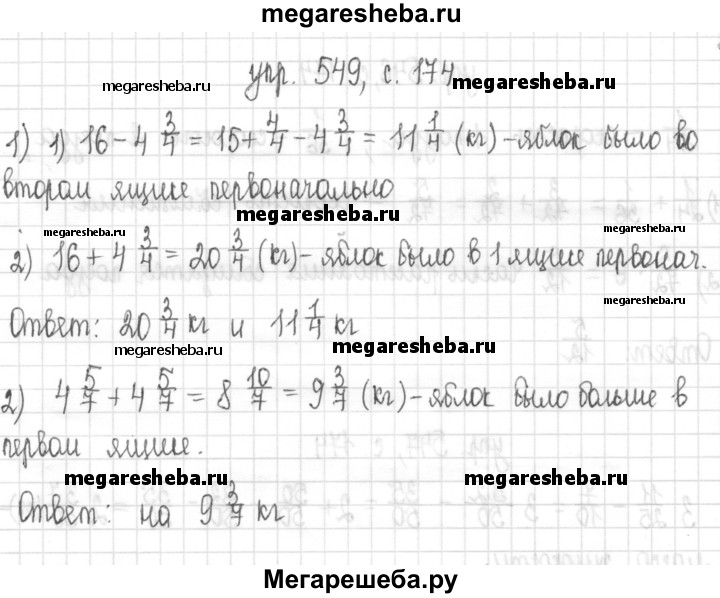 megaresheba.ru
упр. 549, с. 174
megaresheba.ru megaresheba.ru
1) 1) 16 - 4 3/4 = 15 + 4/4 - 4 3/4 = 11 1/4 (кг) - яблок было во
втором ящике первоначально
megaresheba.ru
megaresheba.ru megaresheba.ru
2) 16 + 4 3/4 = 20 3/4 (кг) - яблок было в 1 ящике первонач.
megaresheba.ru
Ответ: 20 3/4 кг и 11 1/4 кг
megaresheba.ru megaresheba.ru
2) 4 5/7 + 4 5/7 = 8 10/7 = 9 3/7 (кг) - яблок было больше в
первом ящике.
megaresheba.ru megaresheba.ru
Ответ: на 9 3/7 кг
Мегарешеба.ру